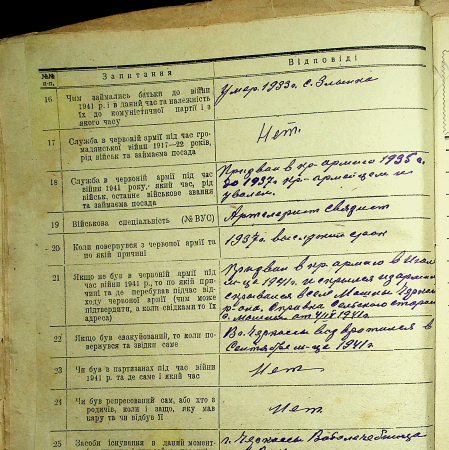 №№
п-п.
Запитання
Відповіді
16
Чим займались батьки до війни
1941 р. і в даний час та належність
їх до комуністичної партії і з
якого часу
Умер 1933 г. с. Злынка
17
Служба в червоній армії під час гро-
мадянської війни 1917—22 років,
рід військ та займаєма посада
Нет.
18
Служба в червоній армії під час
війни 1941 року, який час, рід
військ, останнє військове звання
та займаєма посада
Призван в кр. армию 1935 г.
до 1937 г. кр-армейцем и
уволен.
19
Військова спеціальність (№ ВУС)
Артелерист Связист
20
Коли повернувся з червоної армії та
по якій причині
1937 г. срок
21
Якщо не був в червоній армії під
час війни 1941 р., то по якій при-
чині та де перебував підчас від-
ходу червоної армії (чим може
підтвердити, а коли свідками то їх
адреса)
Призван в кр. армию в
м-ца 1941 г. и скрылся из армии
скрывался в селе Мошны
р-она, Справка Сельского
с. Мошны от 1941 г.
22
Якщо був евакуйований, то коли по-
вернувся та звідки саме
В г. Черкассы возвратился в
Сентябре м-це 1941 г.
23
Чи був в партизанах під час війни
1941 р. та де саме і який час
Нет
24
Чи був репресований сам, або хто з
родичів, коли і защо, яку мав
кару та чи відбув її
Нет.
25
Засоби існування в даний момент
г. Черкассы